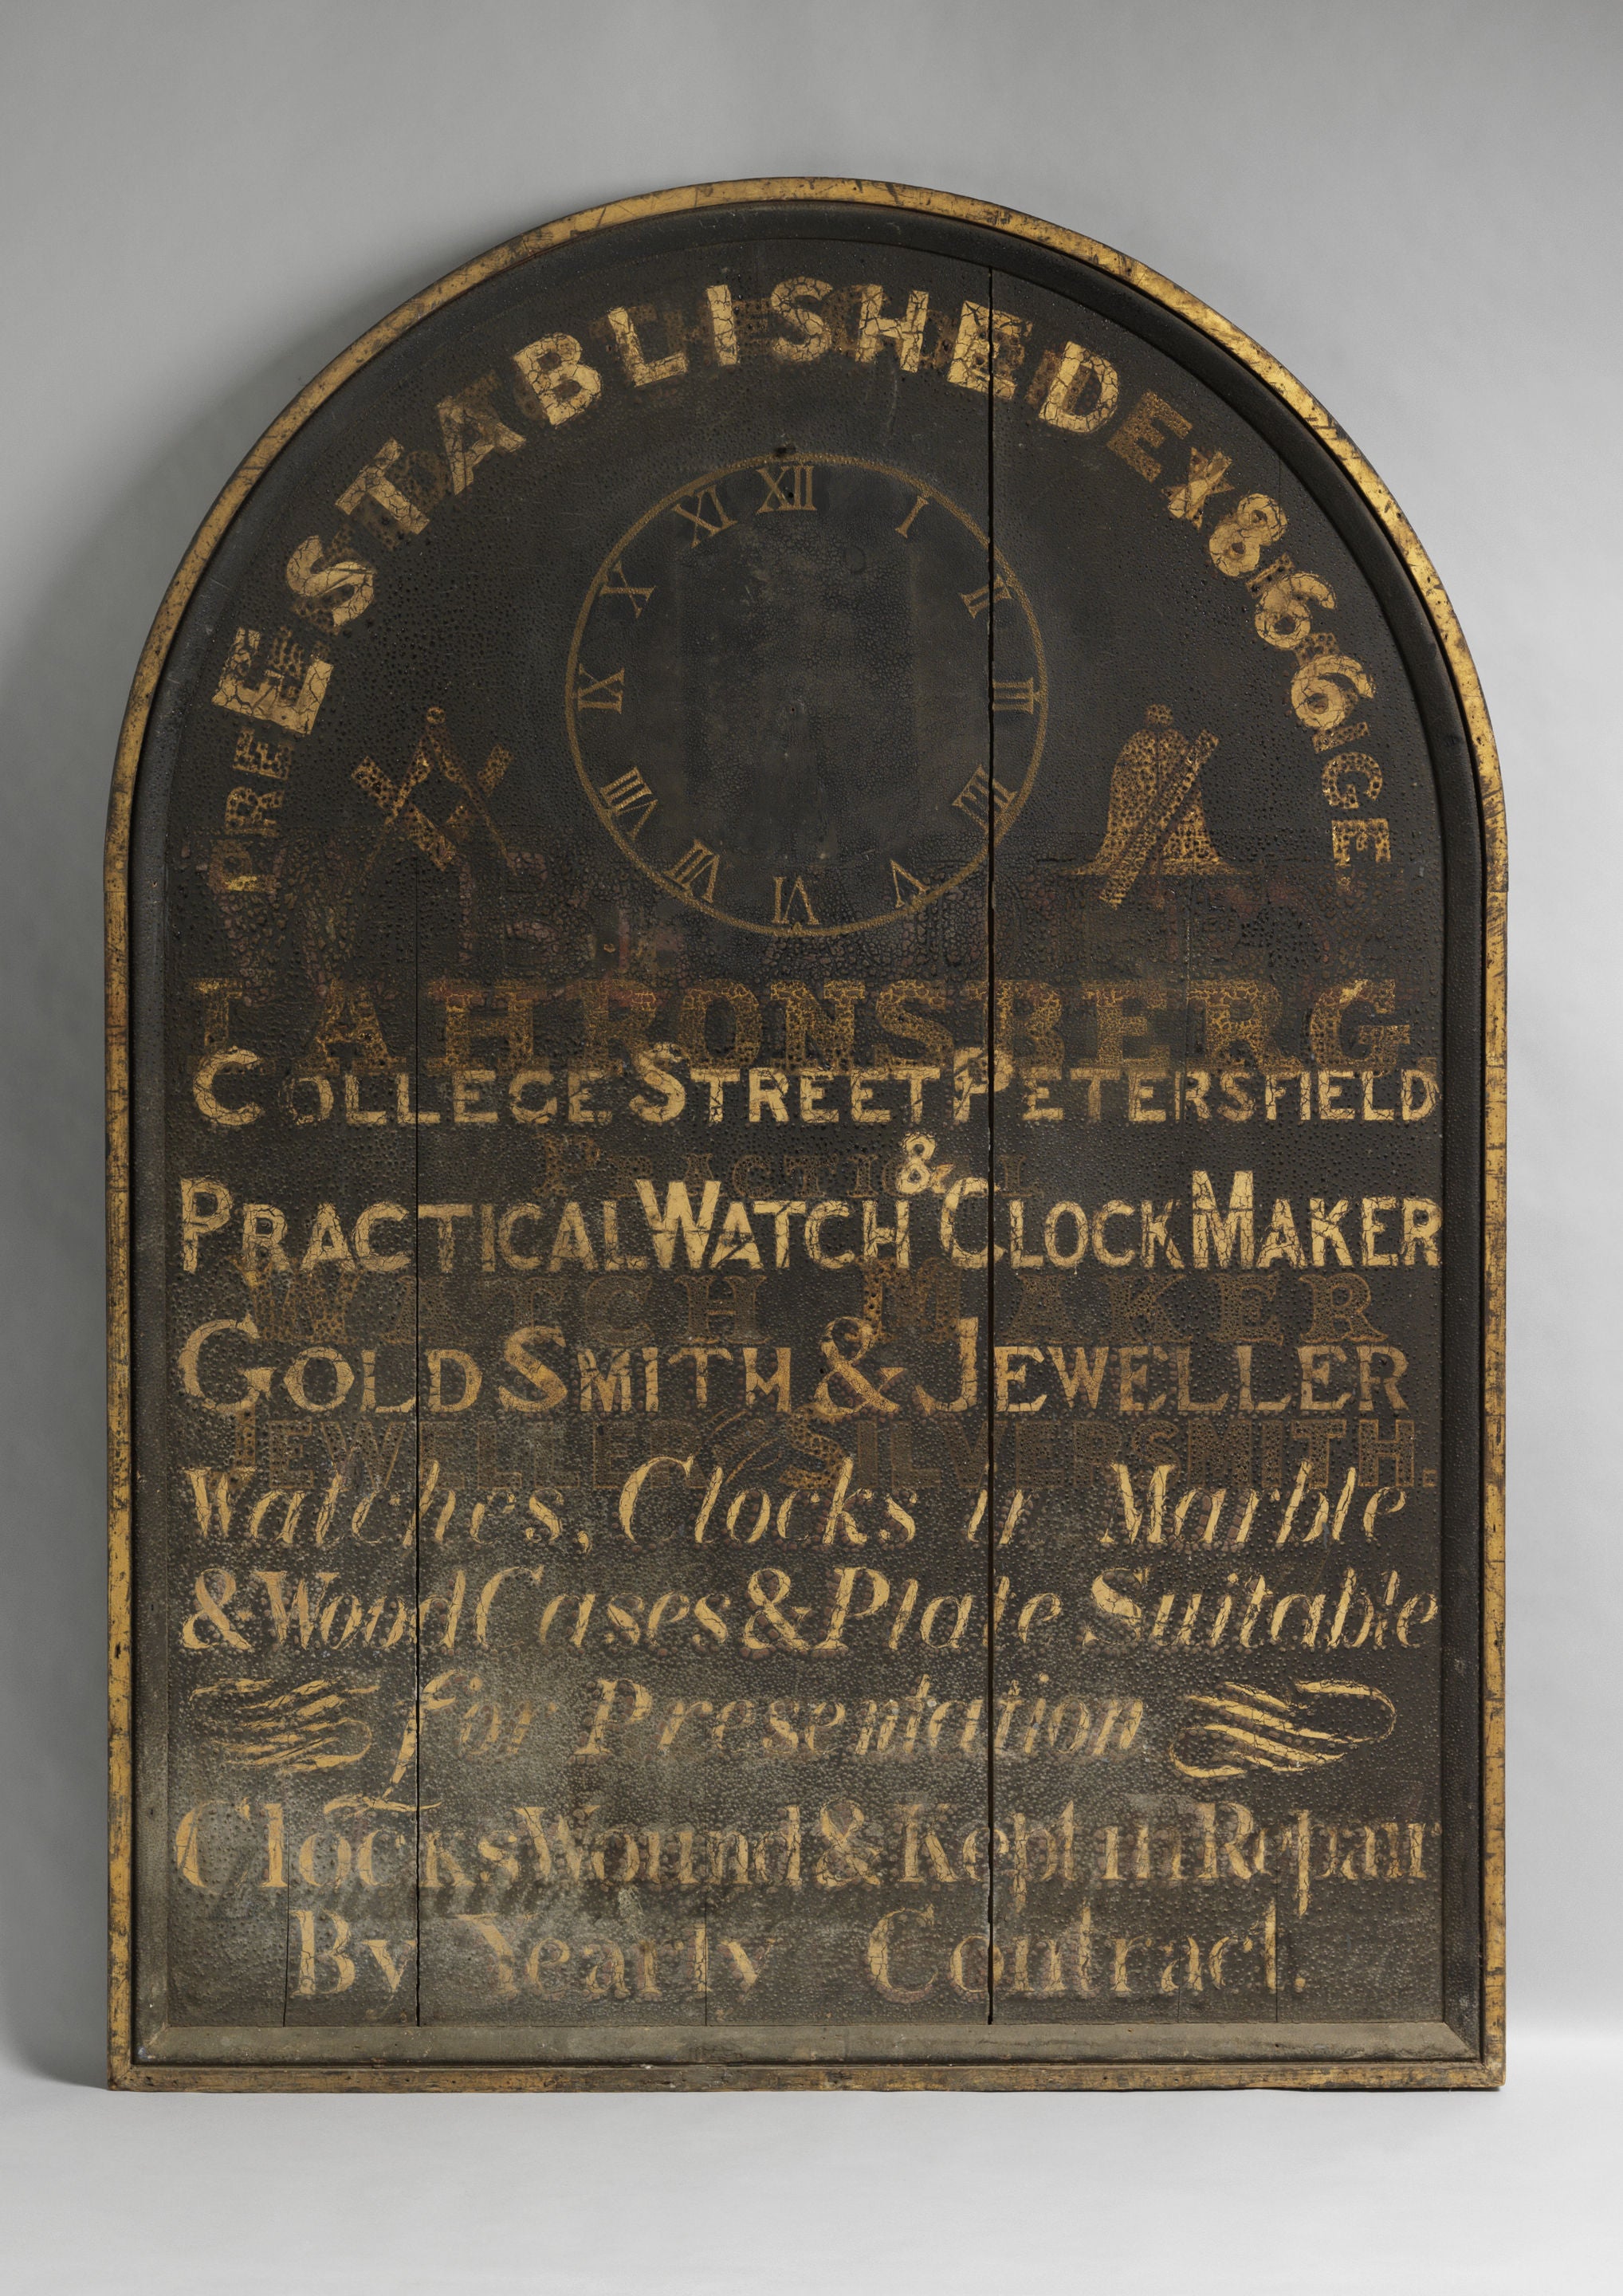 ESTABLISHED 1866
XII I II III IIII V VI VII VIII IX X XI
T AHRONSBERG.
COLLEGE STREET PETERSFIELD
PRACTICAL
PRACTICAL WATCH & CLOCK MAKER
WATCH MAKER
GOLD SMITH & JEWELLER
JEWELLER SILVERSMITH.
Watches, Clocks in Marble
& Wood Cases & Plate Suitable
for Presentation
Clocks Wound & Kept in Repair
By Yearly Contract.